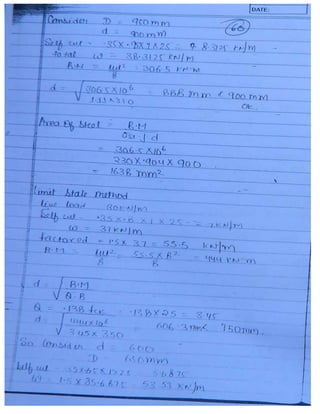 DATE:
Consider D = 950mm
d = 900mm
68
Self wt = .35 × .95 × 1 × 25 = 8.3125 KN/m
total w = 38.3125 KN/m
B.M = wl² = 306.5 KN-m
8
d = √ 306.5×10⁶ = 888 mm < 900 mm
OK.
Area Of Steel = B.M
σst j d
= 306.5×10⁶
230×.904×900
= 1638 mm²
Limit State Method
live load 30KN/m
Self wt = .35×.8×1×25 = 7KN/m
w = 37KN/m
factored = 1.5× 37 = 55.5 KN/m
B.M = wl² = 55.5×8² = 444 KN-m
8 8
d = √ B.M
Q.B
Q = .138 fck = .138×25 = 3.45
d = √ 444×10⁶ = 606.3mm < 750mm.
3.45×350
So Consider d = 600
D = 650mm
Self wt = .35×.65×1×25 = 5.6875
w = 1.5×35.6875 = 53.53 KN/m